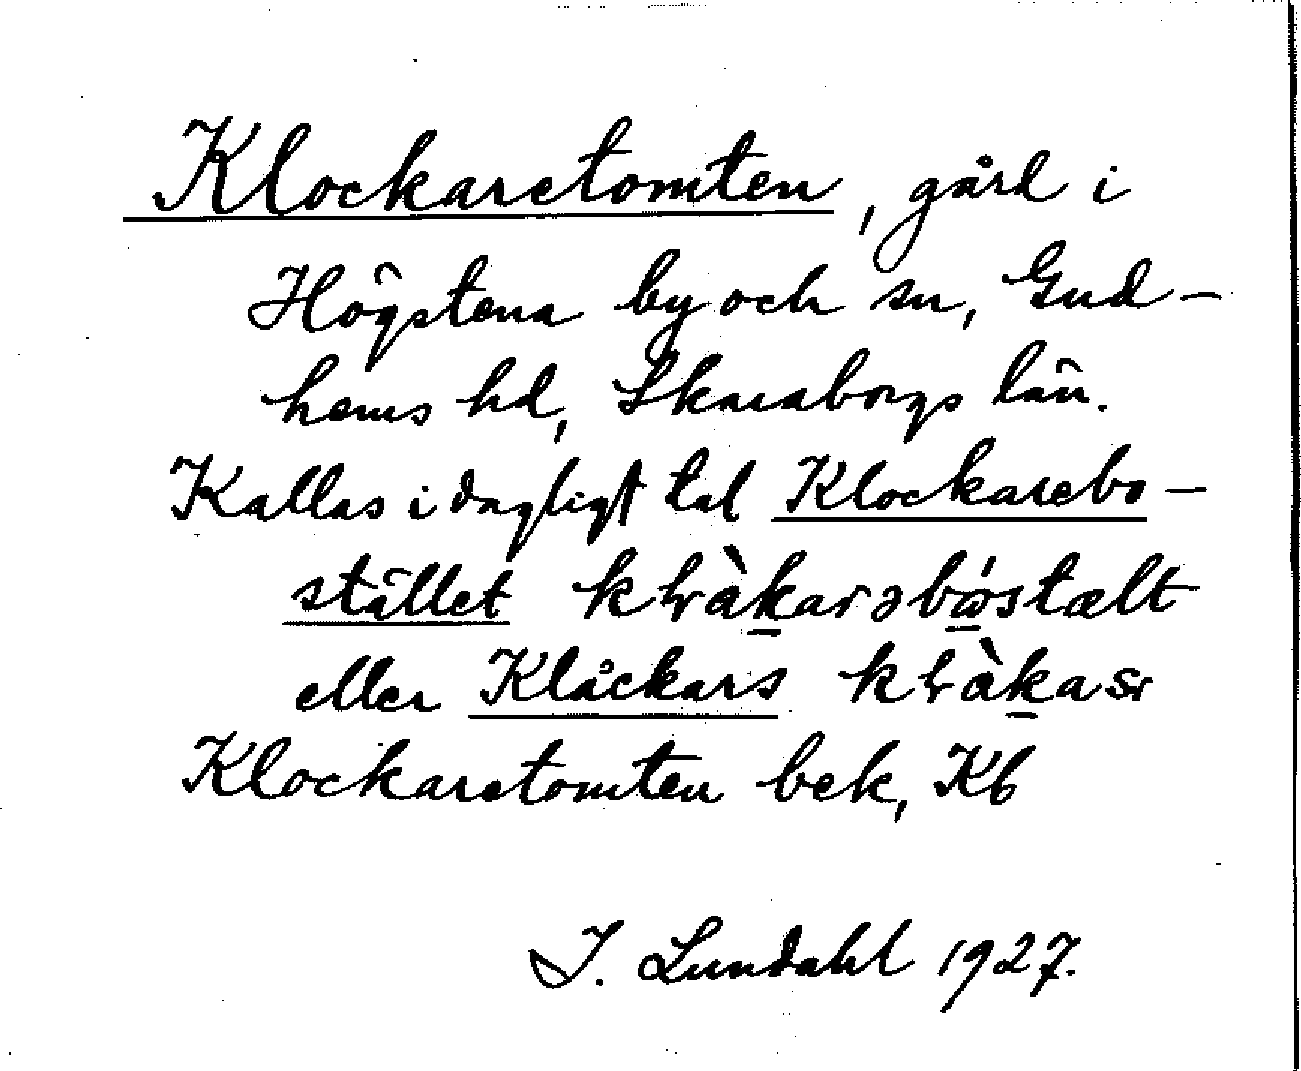 Klockaretomten, gård i
Högstena by och sn, Gud-
hems hd, Skaraborgs län.
Kallas i dagligt tal Klockarebo-
stället
eller Klåckars
Klockaretomten bek, Kb
I. Lundahl 1927.